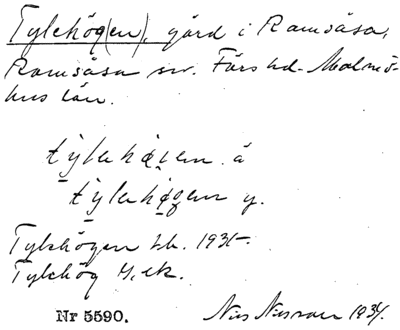 Tylehög(en), gård i Ramsåsa,
Ramsåsa sn. Färs hd. Malmö-
hus län.
tylehöien. ä
tylehögen y.
Tylehögen tb. 1935.
Tylehög H. ek.
Nr 5590.
Nils 1935.